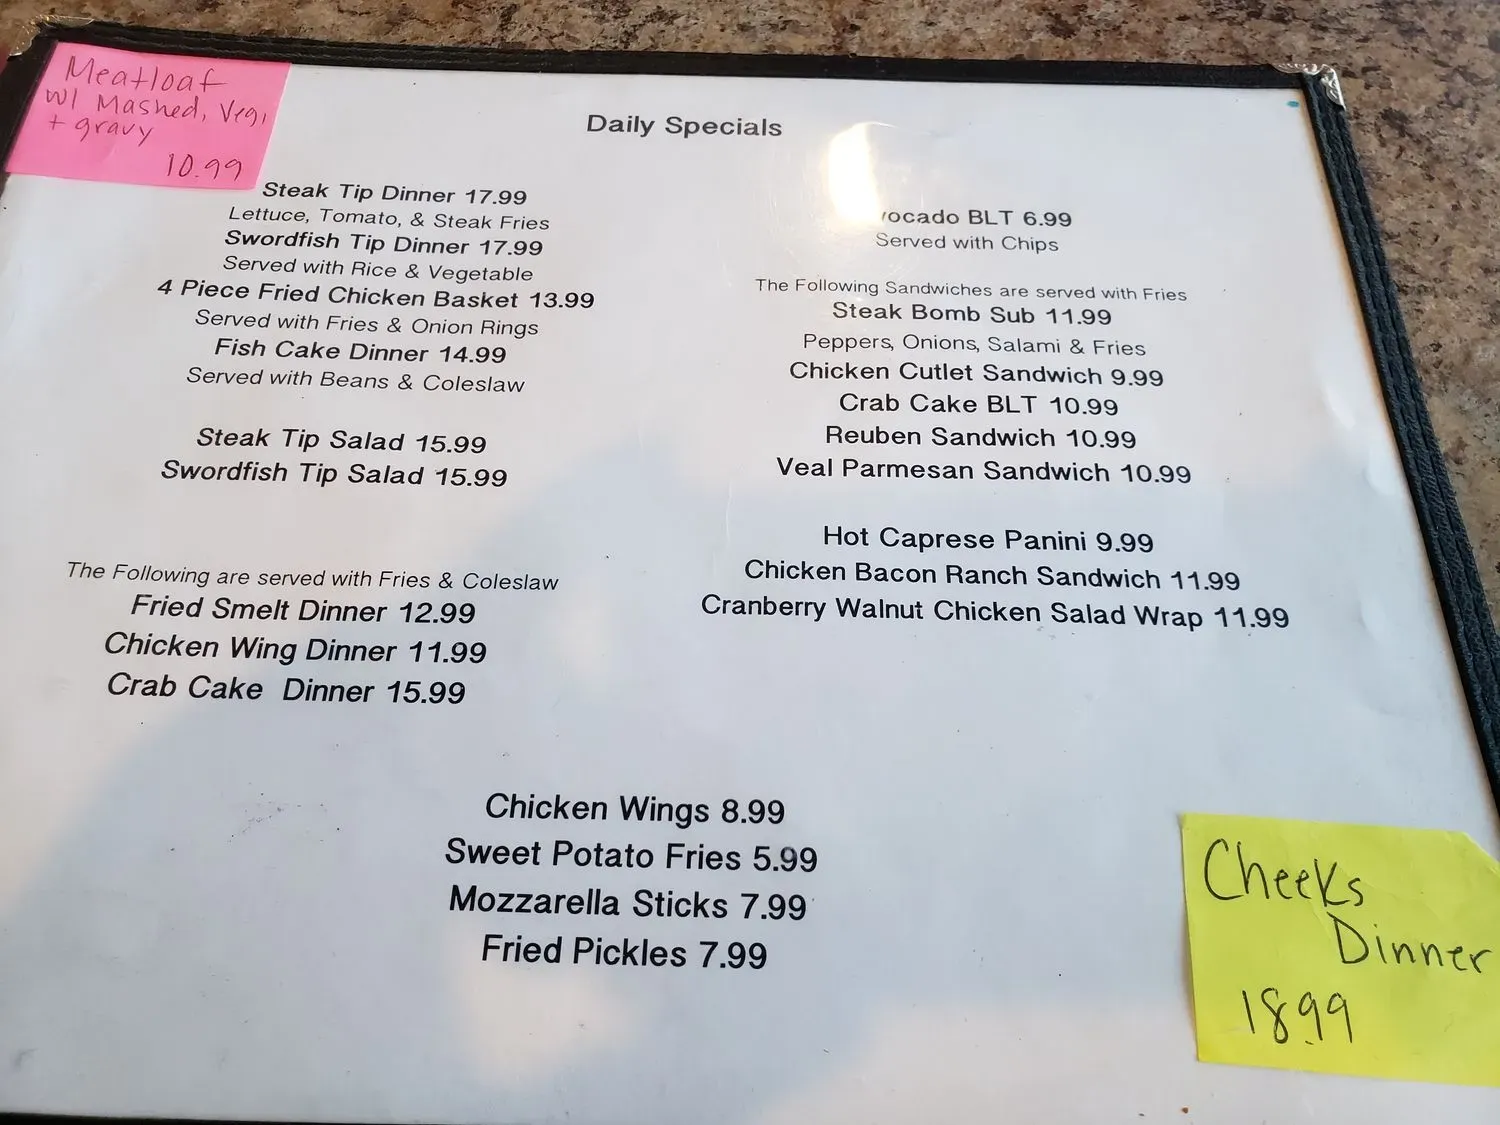 Meatloaf
w/ Mashed, Veg,
+ gravy
10.99
Daily Specials
Steak Tip Dinner 17.99
Lettuce, Tomato, & Steak Fries
Swordfish Tip Dinner 17.99
Served with Rice & Vegetable
4 Piece Fried Chicken Basket 13.99
Served with Fries & Onion Rings
Fish Cake Dinner 14.99
Served with Beans & Coleslaw
Steak Tip Salad 15.99
Swordfish Tip Salad 15.99
The Following are served with Fries & Coleslaw
Fried Smelt Dinner 12.99
Chicken Wing Dinner 11.99
Crab Cake Dinner 15.99
vocado BLT 6.99
Served with Chips
The Following Sandwiches are served with Fries
Steak Bomb Sub 11.99
Peppers, Onions, Salami & Fries
Chicken Cutlet Sandwich 9.99
Crab Cake BLT 10.99
Reuben Sandwich 10.99
Veal Parmesan Sandwich 10.99
Hot Caprese Panini 9.99
Chicken Bacon Ranch Sandwich 11.99
Cranberry Walnut Chicken Salad Wrap 11.99
Chicken Wings 8.99
Sweet Potato Fries 5.99
Mozzarella Sticks 7.99
Fried Pickles 7.99
Cheeks
Dinner
18.99